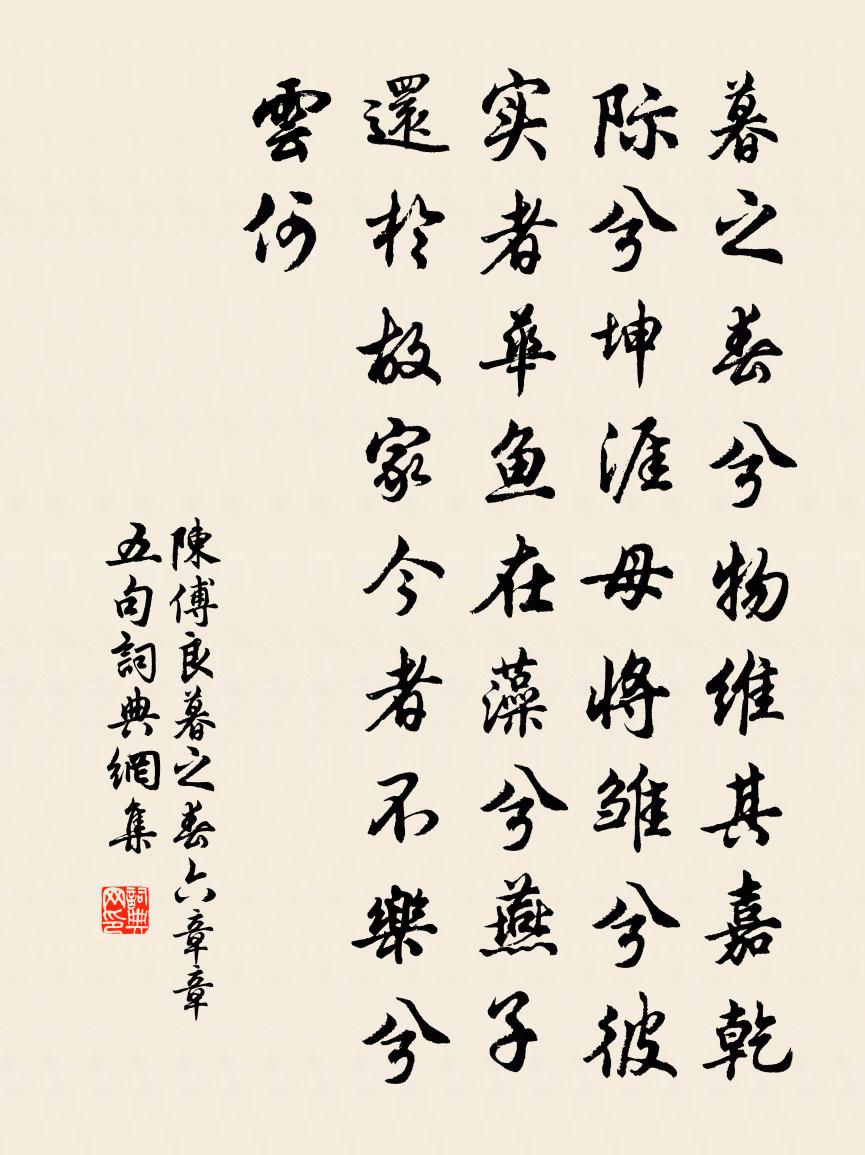 暮之春兮物维其嘉乾
际兮坤涯母将雏兮彼
实者华鱼在藻兮燕子
還於故家今者不樂兮
雲何
陳傅良暮之春六章章
五句詞典網集
詞典
网印